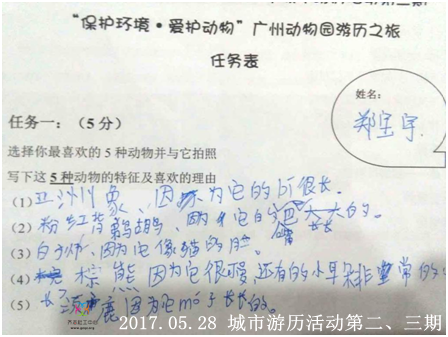 “保护环境·爱护动物”广州动物园游历之旅
任务表
姓名：
郑宝宇
任务一：（5分）
选择你最喜欢的5种动物并与它拍照
写下这5种动物的特征及喜欢的理由
(1) 亚洲象、因为它的bí很长。
(2) 粉红背鹈鹕、因为它的 大大的。
(3) 白狮、因为它像猫的脸。
(4) 棕熊 因为它很 还有的小耳朵非常的
(5) 长颈鹿因为它 子长长的。
2017.05.28 城市游历活动第二、三期